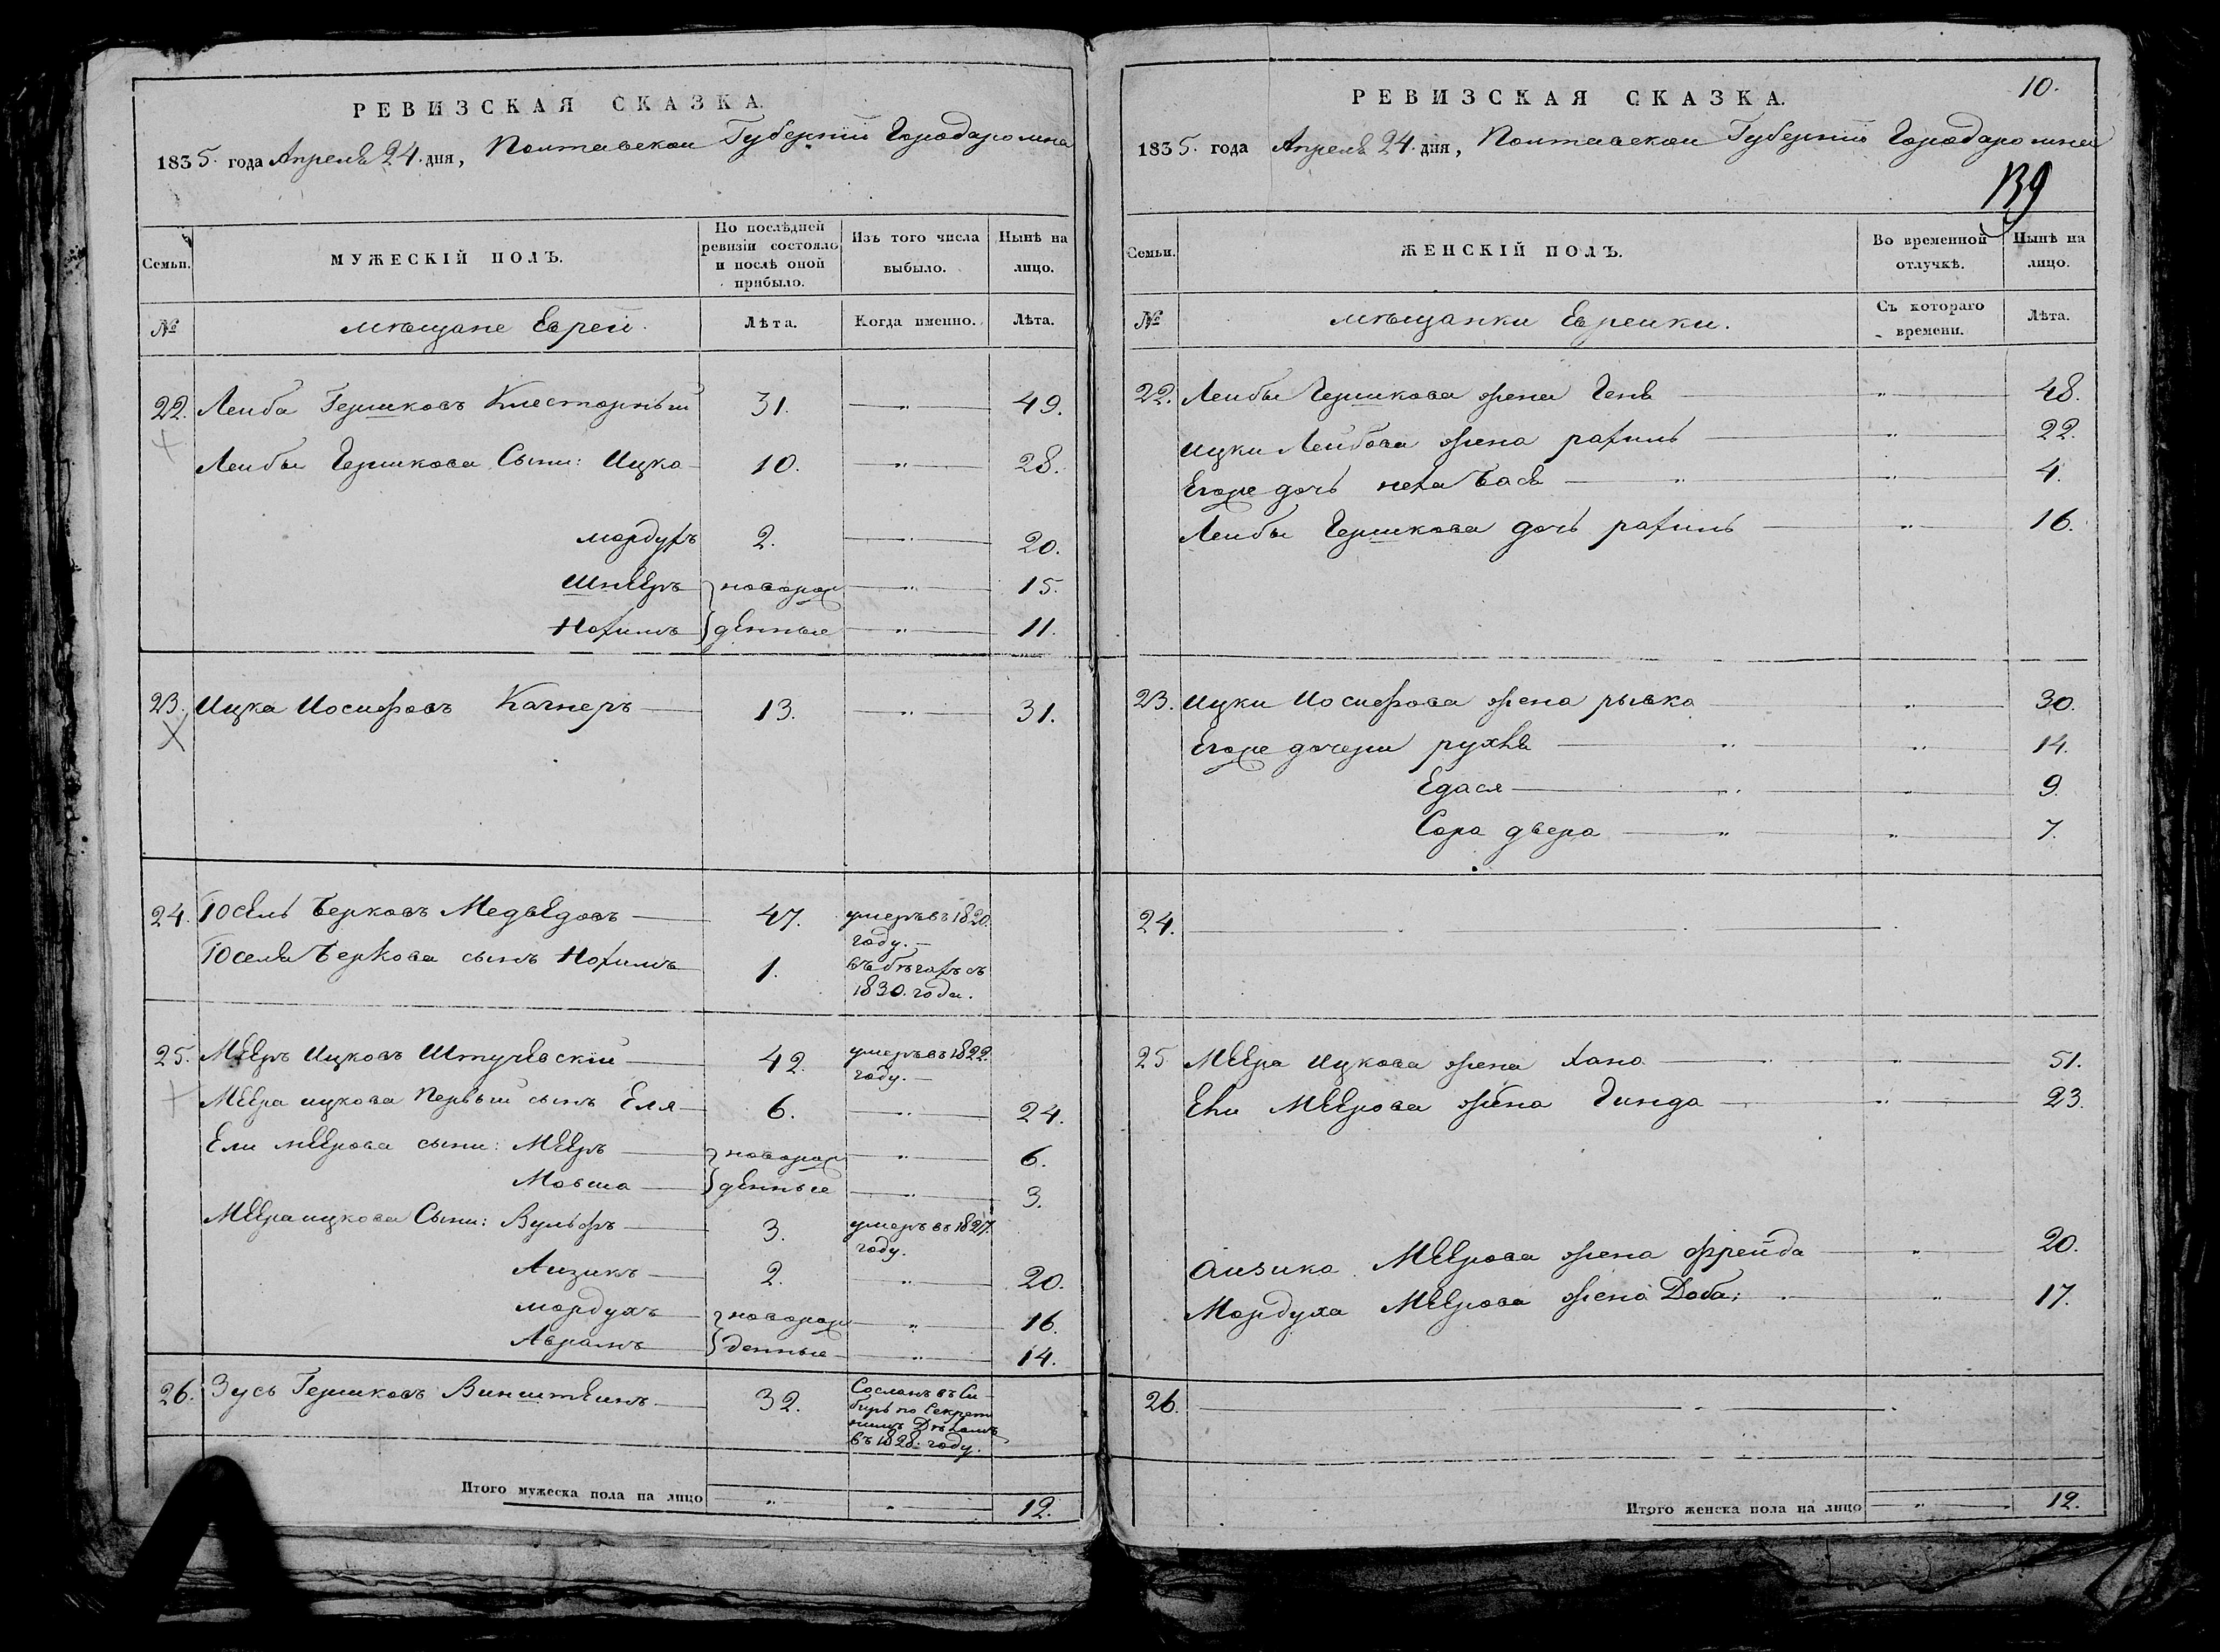 РЕВИЗСКАЯ СКАЗКА.
1835. года Апреля 24. дня, Полтавской Губернии Города Ромна
Семьи.
МУЖЕСКІЙ ПОЛЪ.
По послѣдней ревизіи состояло и послѣ оной прибыло.
Изъ того числа выбыло.
Нынѣ на лицо.
№
мѣщане Евреи.
Лѣта.
Когда именно.
Лѣта.
22. Лейба Гершковъ 31. — " — 49.
Лейбы Гершкова Сыни: Ицко 10. — " — 28.
мордухъ 2. — " — 20.
Шнееръ новорож — " — 15.
Нохимъ денные — " — 11.
23. Ицка Иосифовъ Кагнеръ 13. — " — 31.
24. Іосель Берковъ Медведовъ 47. умеръ въ 1820. году.
Іоселя Беркова сынъ Нохимъ 1. въ бѣгахъ съ 1830. года.
25. Мееръ Ицковъ Штучевскій 42. умеръ въ 1822. году.
Меера ицкова Первый сынъ Еля 6. — " — 24.
Ели меерова сыни: Мееръ новорож — " — 6.
Мовша денные — " — 3.
Меера ицкова Сыни: Вульфъ 3. умеръ въ 1827. году.
Аизикъ 2. — " — 20.
мордухъ новорож — " — 16.
Аврамъ денные — " — 14.
26. Зусь Гершковъ Винштеинъ 32. Сосланъ въ Сибирь по Секретнимъ Дѣламъ въ 1828. году.
Итого мужеска пола на лицо " " 12.
10.
РЕВИЗСКАЯ СКАЗКА.
1835. года Апреля 24. дня, Полтавской Губернии Города Ромна
139
Семьи.
ЖЕНСКІЙ ПОЛЪ.
Во временной отлучкѣ.
Нынѣ на лицо.
№
мѣщанки Евреики.
Съ котораго времени.
Лѣта.
22. Лейбы Гершкова жена Геня — " — 48.
Ицки Лейбова жена рахиль — " — 22.
Егоже дочь неха Бася — " — 4.
Лейбы Гершкова дочь рахиль — " — 16.
23. Ицки Иосифова жена рывка — " — 30.
Егоже дочери рухля — " — 14.
Едася — " — 9.
Сора двера — " — 7.
24.
25 Меера Ицкова жена хана — " — 51.
Ели Меерова жена Гинда — " — 23.
Аизика Меерова жена фрейда — " — 20.
Мордуха Меерова жена Доба: — " — 17.
26.
Итого женска пола на лицо " 12.